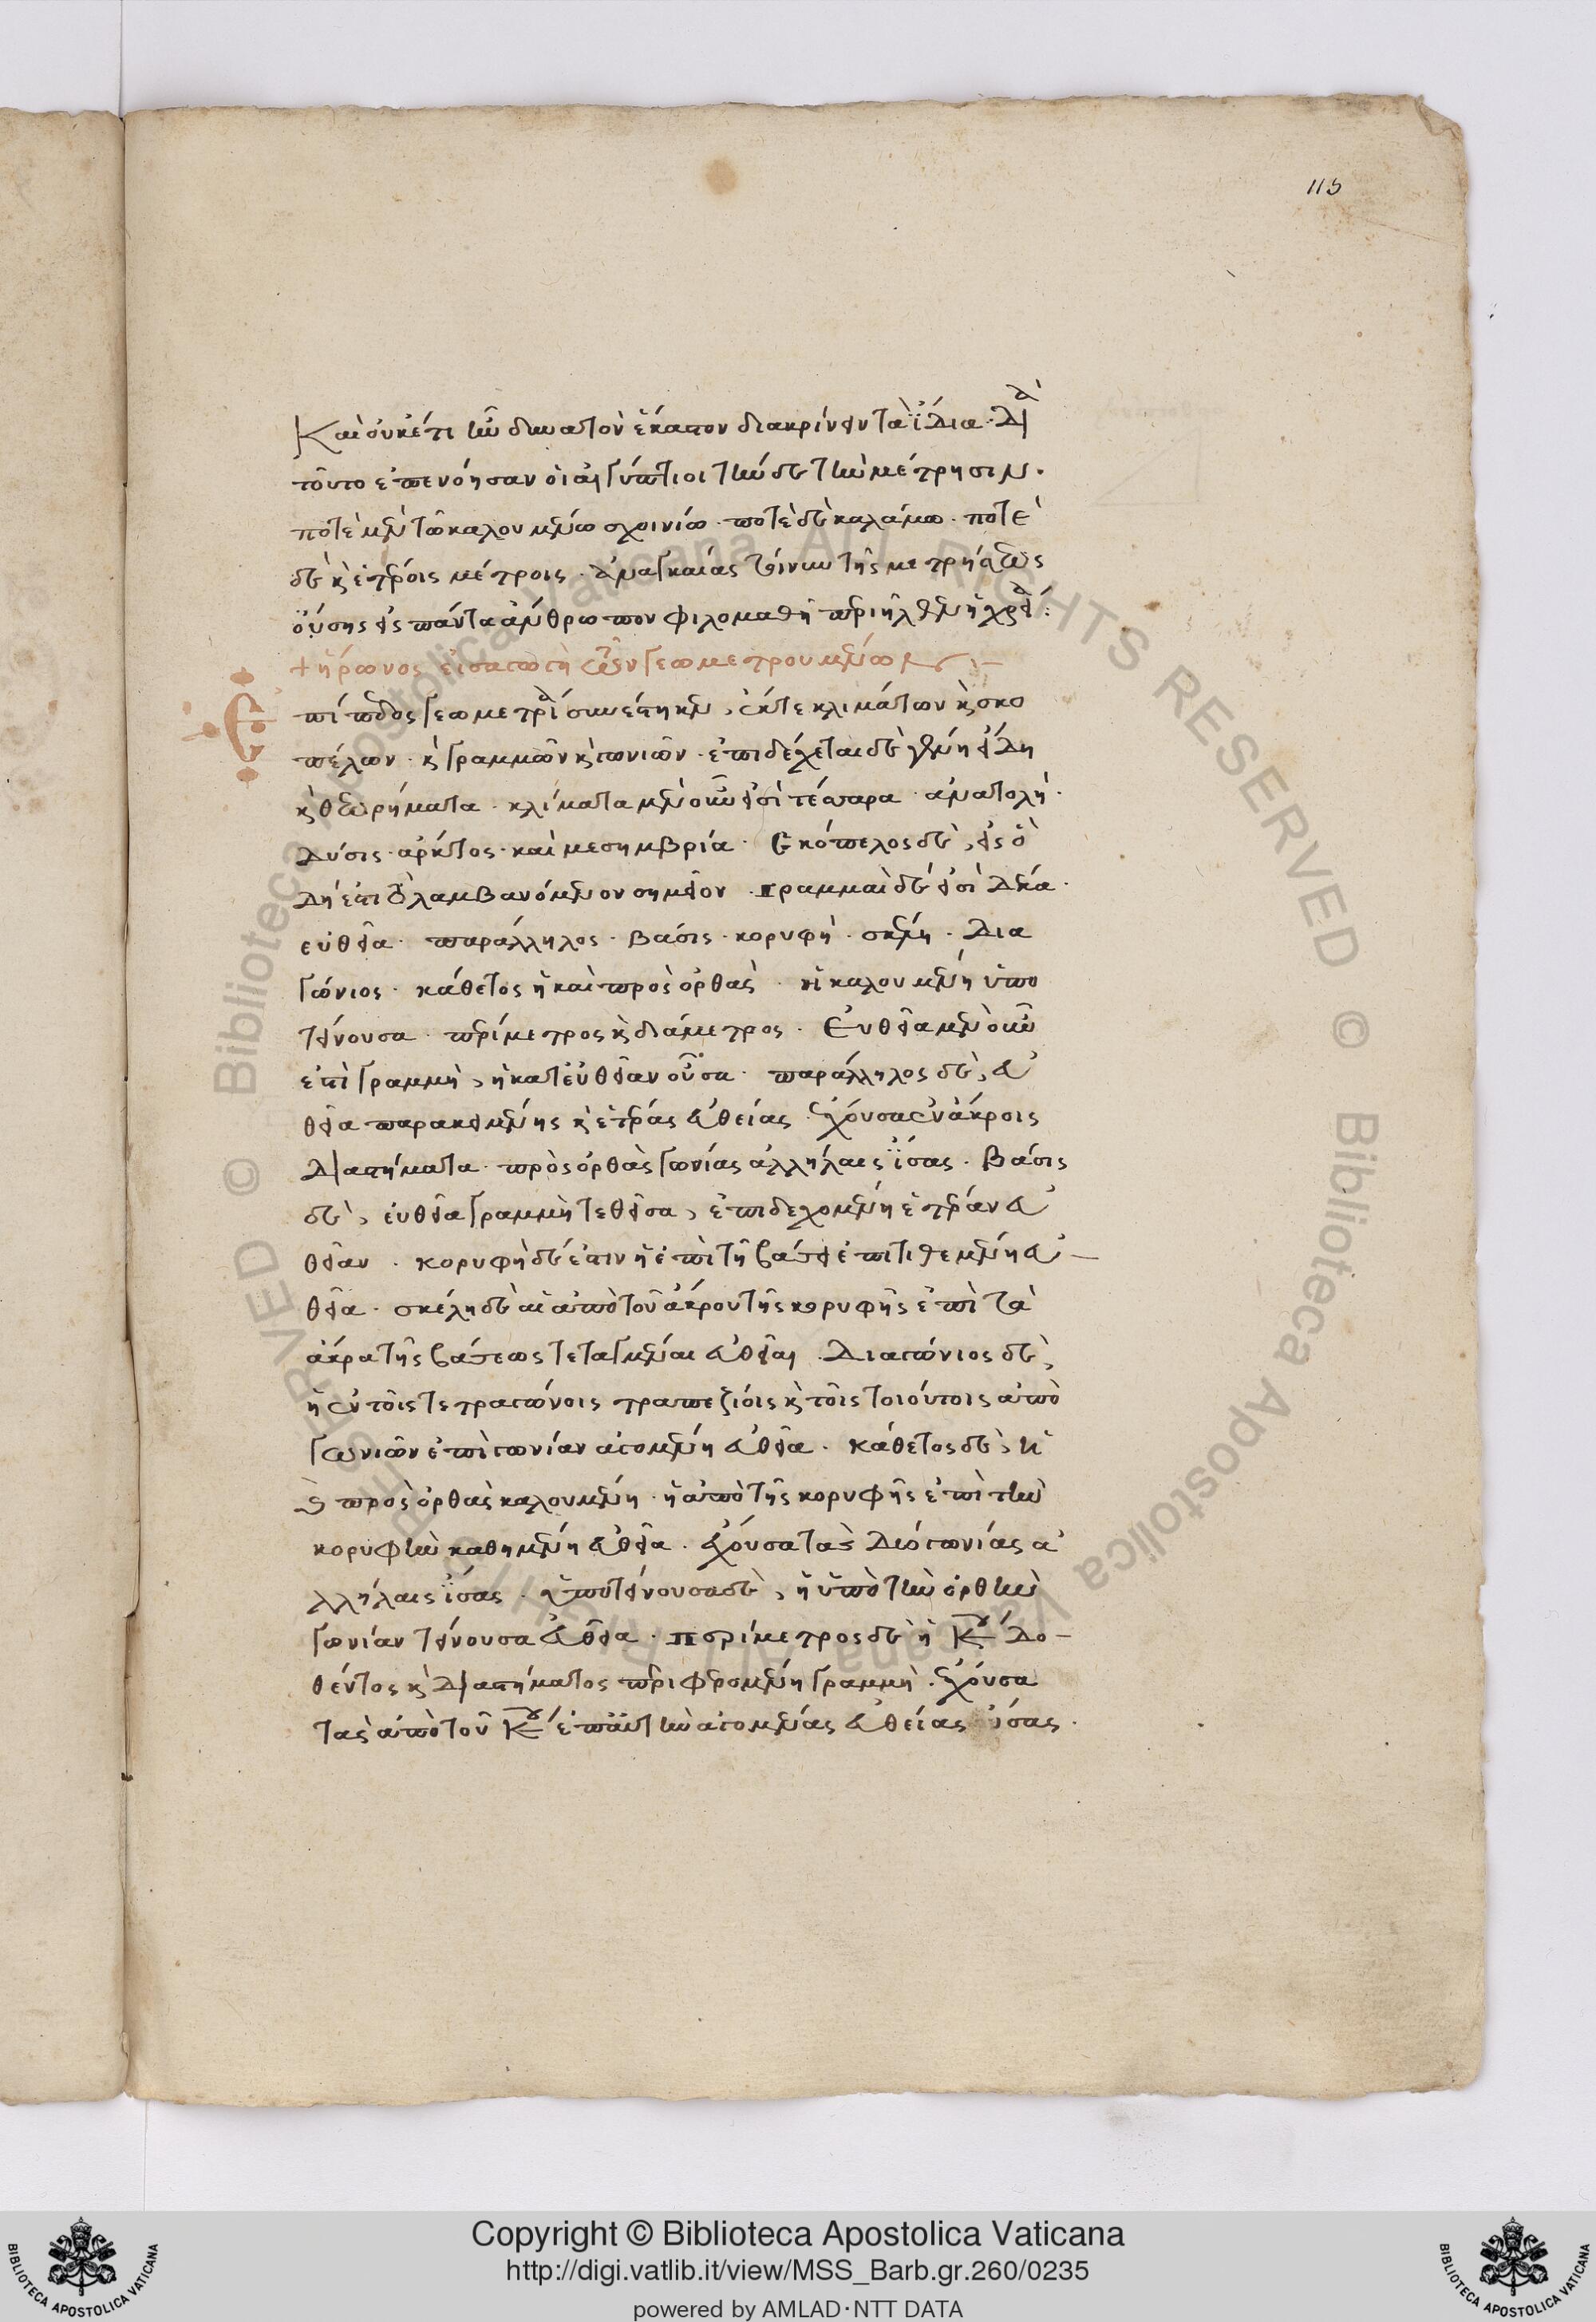 115
Καὶ οὐκέτι ἦν δυνατὸν ἕκαστον διακρίνειν τὰ ἴδια· διὰ
τοῦτο ἐπενόησαν οἱ αἰγύπτιοι τήνδε τὴν μέτρησιν·
ποτὲ μὲν τῶ καλουμένω σχοινίω· ποτὲ δὲ καλάμω· ποτὲ
δὲ κ ἑτέροις μέτροις· ἀναγκαίας τοίνυν τῆς μετρήσεως
οὔσης εἰς πάντα ἄνθρωπον φιλομαθῆ περιῆλθεν ἡ χρεία:
+ ἥρωνος εἰσαγωγὴ τῶν γεωμετρουμένων
Ἐπίπεδος γεωμετρία συνέστηκεν, ἔκ τε κλιμάτων κ σκο
πέλων· κ γραμμῶν κ γωνιῶν· ἐπιδέχεται δὲ γένη εἴδη
κ θεωρήματα· κλίματα μὲν οὖν εἰσὶ τέσσαρα· ἀνατολή·
δύσις· ἄρκτος· καὶ μεσημβρία· Σκόπελος δὲ, εἰς ὃ
δή ἐστι τὸ λαμβανόμενον σημεῖον· γραμμαὶ δέ εἰσι δέκα·
εὐθεῖα· παράλληλος· βάσις· κορυφή· σκέλη· δια
γώνιος· κάθετος ἡ καὶ πρὸς ὀρθὰς· ἡ καλουμένη ὑπο
τείνουσα· περίμετρος κ διάμετρος· Εὐθεῖα μὲν οὖν
ἐστὶ γραμμὴ, ἡ κατ εὐθεῖαν οὖσα· παράλληλος δὲ, εὐ
θεῖα παρακειμένης κ ἑτέρας εὐθείας· ἔχουσα ἐν ἄκροις
διαστήματα πρὸς ὀρθὰς γωνίας ἀλλήλαις ἴσας· βάσις
δὲ, εὐθεῖα γραμμὴ τεθεῖσα, ἐπιδεχομένη ἑτέραν εὐ
θεῖαν· κορυφὴ δέ ἐστιν ἡ ἐπὶ τῆ βάσει ἐπιτιθεμένη εὐ–
θεῖα· σκέλη δὲ αἱ ἀπὸ τοῦ ἄκρου τῆς κορυφῆς ἐπὶ τὰ
ἄκρα τῆς βάσεως τεταγμέναι εὐθεῖαι· διαγώνιος δὲ,
ἡ ἐν τοῖς τετραγώνοις τραπεζίοις κ τοῖς τοιούτοις ἀπὸ
γωνιῶν ἐπὶ γωνίαν ἀγομένη εὐθεῖα· κάθετος δὲ, ἡ
κ πρὸς ὀρθὰς καλουμένη· ἡ ἀπὸ τῆς κορυφῆς ἐπὶ τὴν
κορυφὴν καθημένη εὐθεῖα· ἔχουσα τὰς δύο γωνίας ἀ
λλήλαις ἴσας· ὑποτείνουσα δὲ, ἡ ὑπὸ τὴν ὀρθὴν
γωνίαν τείνουσα εὐθεῖα· περίμετρος δὲ ἡ κέντρου δο–
θέντος κ διαστήματος περιφερομένη γραμμὴ· ἔχουσα
τὰς ἀπὸ τοῦ κέντρου ἐπ αὐτὴν ἀγομένας εὐθείας ἴσας·
Copyright © Biblioteca Apostolica Vaticana
http://digi.vatlib.it/view/MSS_Barb.gr.260/0235
powered by AMLAD·NTT DATA